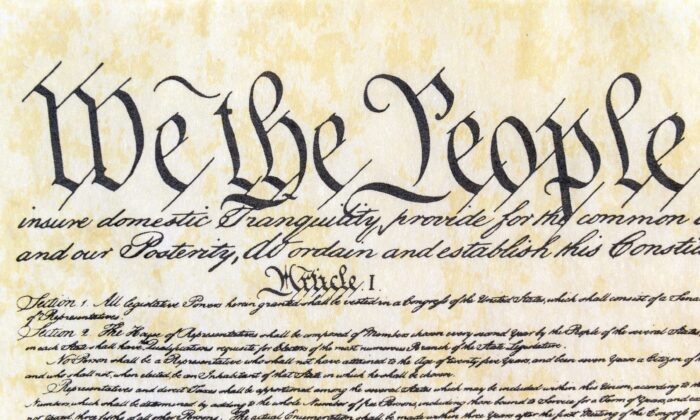 We the People
insure domestic Tranquility, provide for the common
and our Posterity, do ordain and establish this Constitu
Article. I.
Section. 1. All legislative Powers herein granted shall be vested in a Congress of the United States, which shall consist of a Sena
of Representatives.
Section. 2. The House of Representatives shall be composed of Members chosen every second Year by the People of the several States
in each State shall have Qualifications requisite for Electors of the most numerous Branch of the State Legislature.
No Person shall be a Representative who shall not have attained to the Age of twenty five Years, and been seven Years a Citizen of
and who shall not, when elected, be an Inhabitant of that State in which he shall be chosen.
Representatives and direct Taxes shall be apportioned among the several States which may be included within this Union, according to
Numbers, which shall be determined by adding to the whole Number of free Persons, including those bound to Service for a Term of Years, and
not taxed, three fifths of all other Persons. The actual Enumeration shall be made within three Years after the first Meeting of the Congress